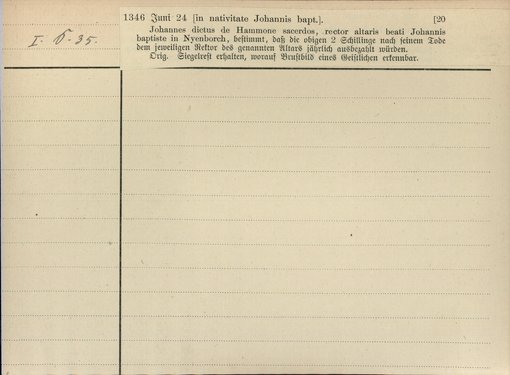 1346 Juni 24 [in nativitate Johannis bapt.]. [20
I. 35.
Johannes dictus de Hammone sacerdos, rector altaris beati Johannis
baptiste in Nyenborch, bestimmt, daß die obigen 2 Schillinge nach seinem Tode
dem jeweiligen Rektor des genannten Altars jährlich ausbezahlt würden.
Orig. Siegelrest erhalten, worauf Brustbild eines Geistlichen erkennbar.